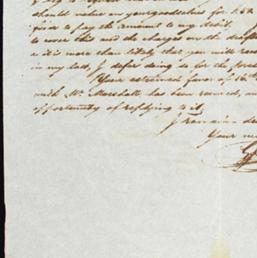 should value on yourselves for £62
prior to pay the amount to my debit.
to cover this and the charges on the draft
as it is more than likely that you will rece
in my last, I defer doing so for the pres
Your esteemed favor of 16th
with Mr. Marshall, has been received, an
opportunity of replying to it.
I remain
Your m